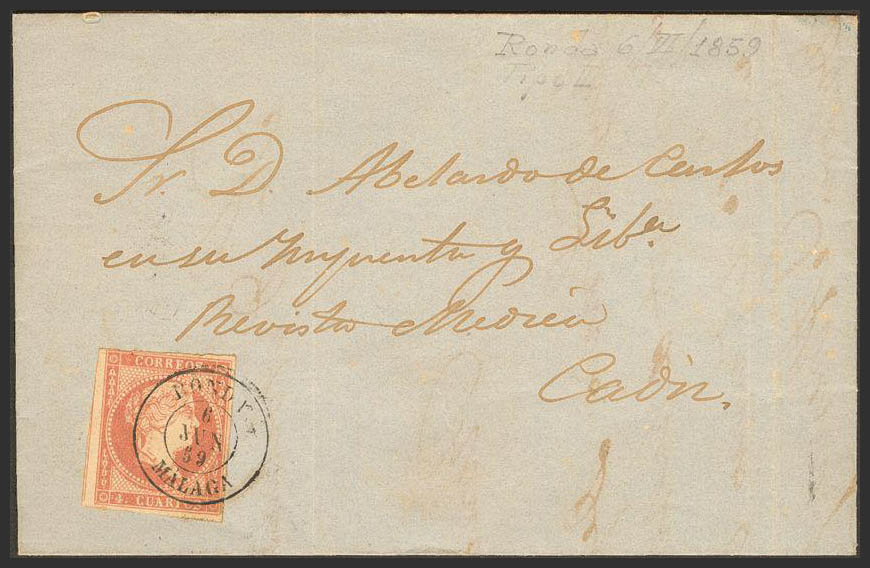 Ronda 6/VI/1859
Tipo II
Sr. D. Abelardo de Carlos
en su Imprenta y Libr.a
Revista Medica
Cadiz,
CORREOS
4 CUARTOS
RONDA
6
JUN
59
MALAGA